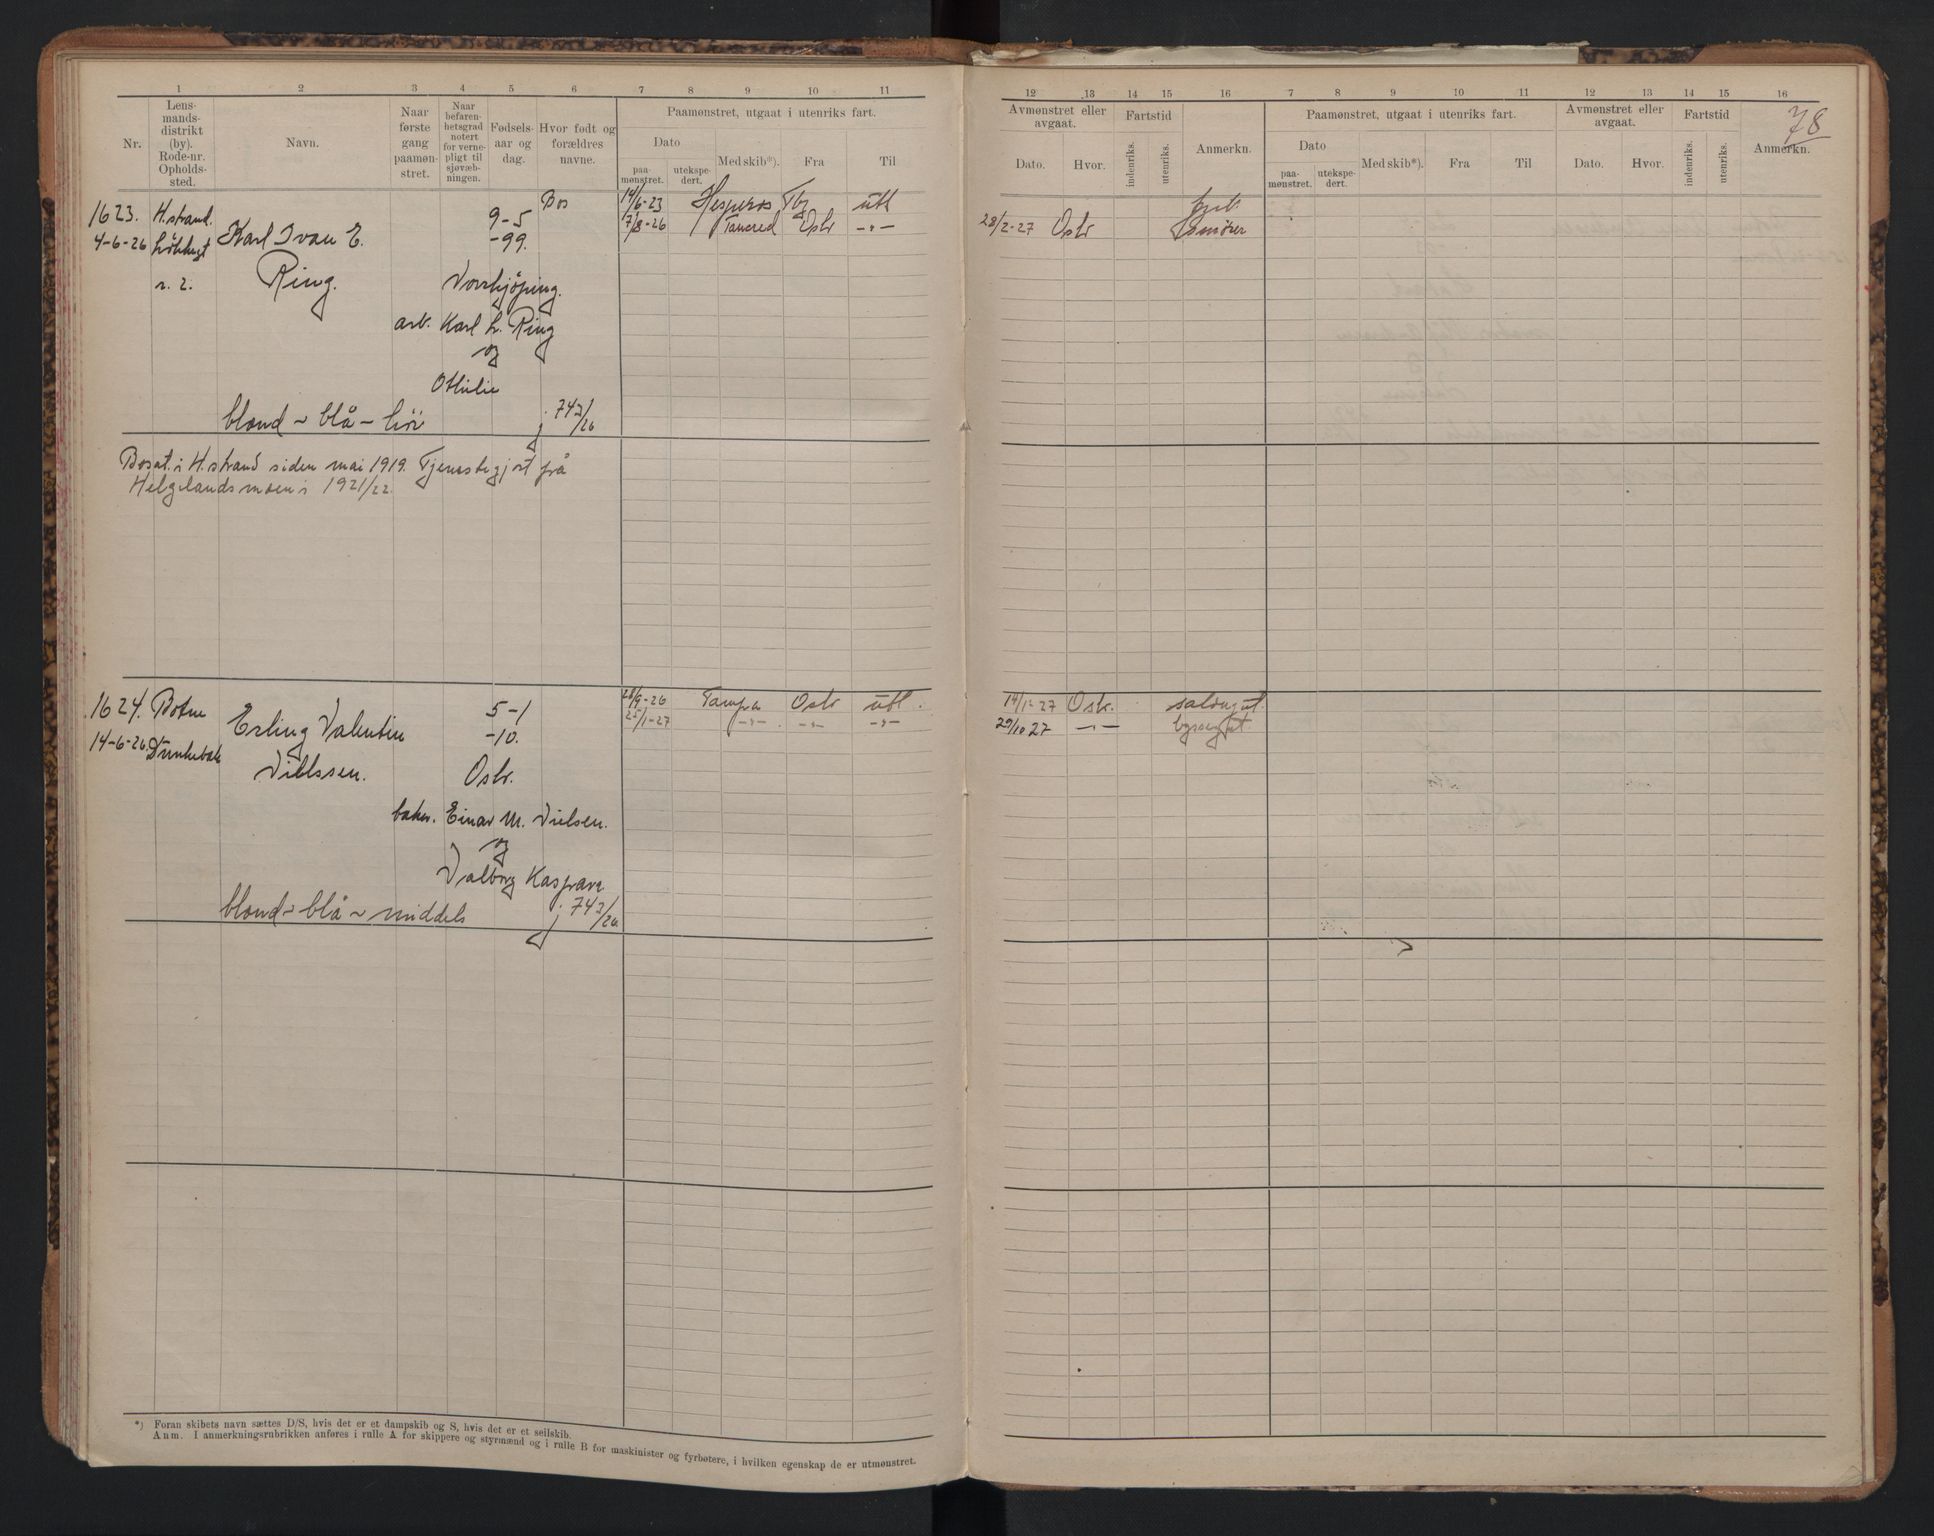 78
1 2 3 4 5 6 7 8 9 10 11
Nr.
Lens-
mands-
distrikt
(by).
Rode-nr.
Opholds-
sted.
Navn.
Naar
første
gang
paamøn-
stret.
Naar
befaren-
hetsgrad
notert
for verne-
pligt til
sjøvæb-
ningen.
Fødsels-
aar og
dag.
Hvor født og
forældres
navne.
Paamønstret, utgaat i utenriks fart.
Dato
paa-
mønstret.
utekspe-
dert.
Med skib*).
Fra
Til
1623. H.strand.
4-6-26
r. 2.
Karl Ivan E.
Ring.
9-5
-99.
arb. Karl L. Ring
og
Othilie
blond - blå - 
j. 742/26
14/6-23 Hesperos Tbg utl
7/8-26 Tancred Oslo -"-
Bosat i H.strand siden mai 1919. Tjenestegjort på
Helgelandsmoen i 1921/22.
1624. Botne
14-6-26
Erling Valentin
Nielssen.
5-1
-10.
Oslo.
baker. Einar M. Nielsen.
og
Valborg Kaspara
blond - blå - middels
j. 742/26.
28/9-26 Tampa Oslo utl.
25/1-27 -"- -"- -"-
*) Foran skibets navn sættes D/S, hvis det er et dampskib og S, hvis det er et seilskib.
Anm. I anmerkningsrubrikken anføres i rulle A for skippere og styrmænd og i rulle B for maskinister og fyrbøtere, i hvilken egenskap de er utmønstret.
12 13 14 15 16 7 8 9 10 11 12 13 14 15 16
Avmønstret eller
avgaat.
Dato.
Hvor.
Fartstid
indenriks.
utenriks.
Anmerkn.
Paamønstret, utgaat i utenriks fart.
Dato
paa-
mønstret.
utekspe-
dert.
Med skib*).
Fra
Til
Avmønstret eller
avgaat.
Dato.
Hvor.
Fartstid
indenriks.
utenriks.
Anmerkn.
fyrb.
28/2-27 Oslo smører
14/1-27 Oslo. salongut.
29/10 27 -"- byssegut.